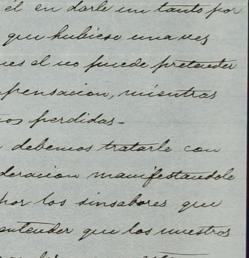 él en darle un tanto por
que hubiese una vez
ues el no puede pretender
pensacion, mientras
os perdidas.-
debemos tratarle con
deracion manifestandole
por los sinsabores que
entender que los nuestros